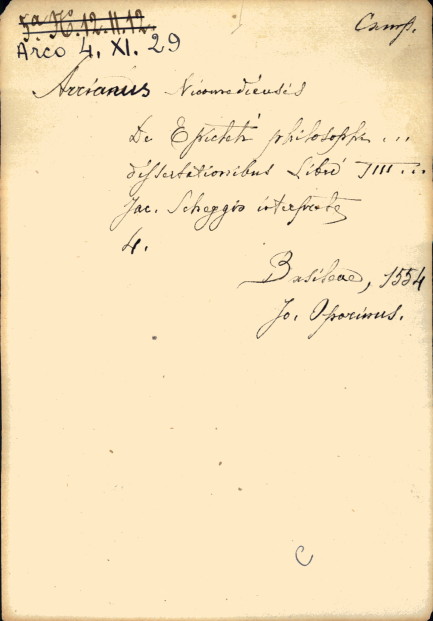 5.a K. 12. II. 12.
Camp.
Arco 4. XI. 29
Arrianus Nicomediensis
De Epicteti philosophi ...
dissertationibus Libri IIII ...
Jac. Scheggio interprete
4.
Basileae, 1554
Jo. Oporinus.
C